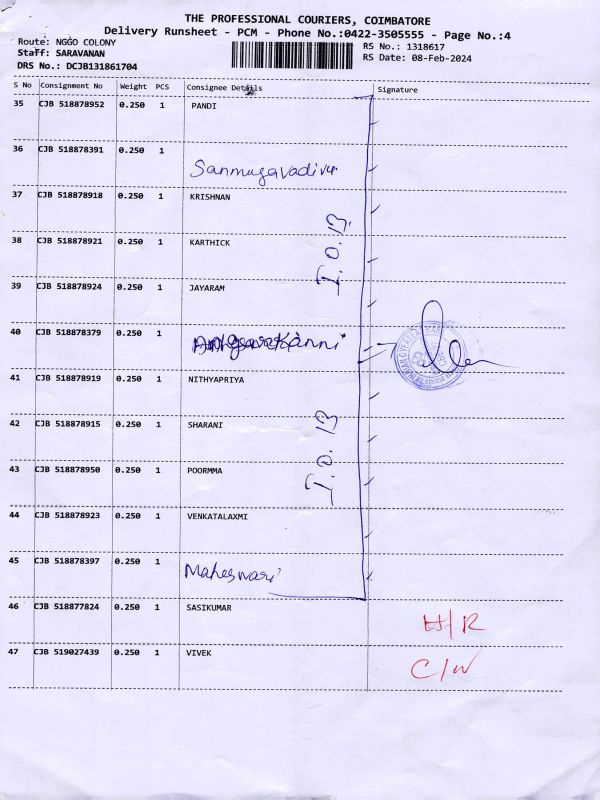 THE PROFESSIONAL COURIERS, COIMBATORE
Delivery Runsheet - PCM - Phone No.:0422-3505555 - Page No.:4
Route: NGGO COLONY
Staff: SARAVANAN
DRS No.: DCJB131861704
RS No.: 1318617
RS Date: 08-Feb-2024
S No Consignment No Weight PCS Consignee Details Signature
35 CJB 518878952 0.250 1 PANDI
36 CJB 518878391 0.250 1 Sanmugavadivu
37 CJB 518878918 0.250 1 KRISHNAN
38 CJB 518878921 0.250 1 KARTHICK
I.O.B
39 CJB 518878924 0.250 1 JAYARAM
40 CJB 518878379 0.250 1
41 CJB 518878919 0.250 1 NITHYAPRIYA
42 CJB 518878915 0.250 1 SHARANI
I.O.B
43 CJB 518878950 0.250 1 POORMMA
44 CJB 518878923 0.250 1 VENKATALAXMI
45 CJB 518878397 0.250 1 Maheswari
46 CJB 518877824 0.250 1 SASIKUMAR H/R
47 CJB 519027439 0.250 1 VIVEK C/W